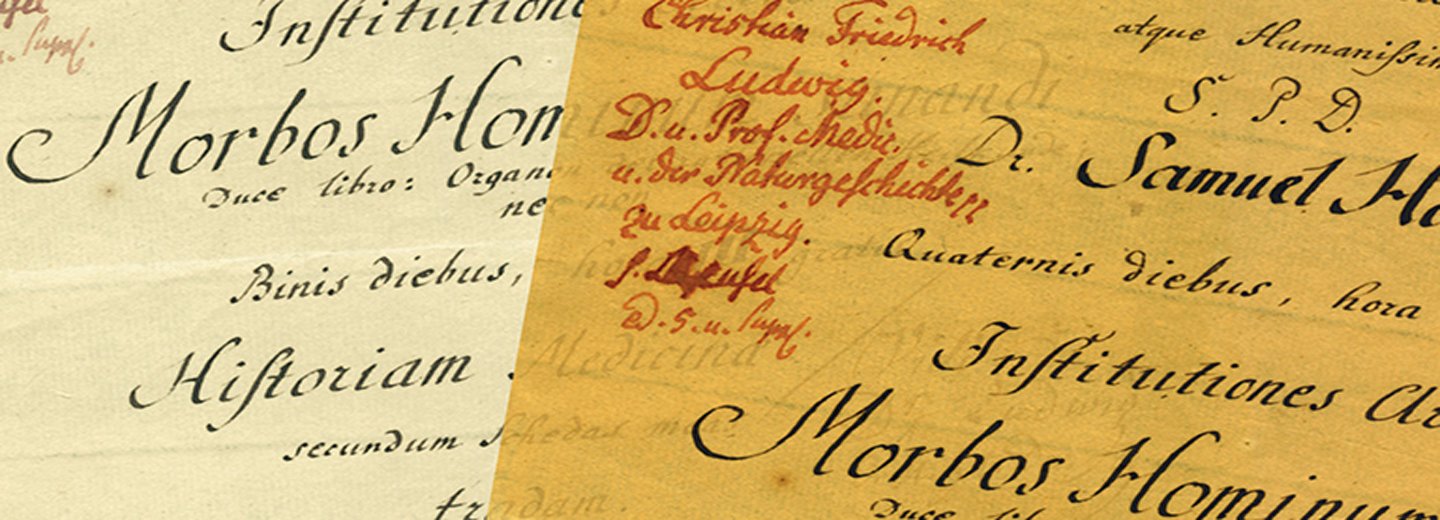 Institution
Morbos Hom
Duce libro: Organon
nec
Binis diebus,
Historiam
secundum schedas
tradam.
Christian Friedrich
Ludwig.
D. u. Prof. Medic.
u. der Naturgeschichte
zu Leipzig.
s. Meusel
ed. 5. u. Suppl.
atque Humanissim
S. P. D.
Dr. Samuel Ha
Quaternis diebus, hora
Institutiones Ar
Morbos Hominum
Duce lib